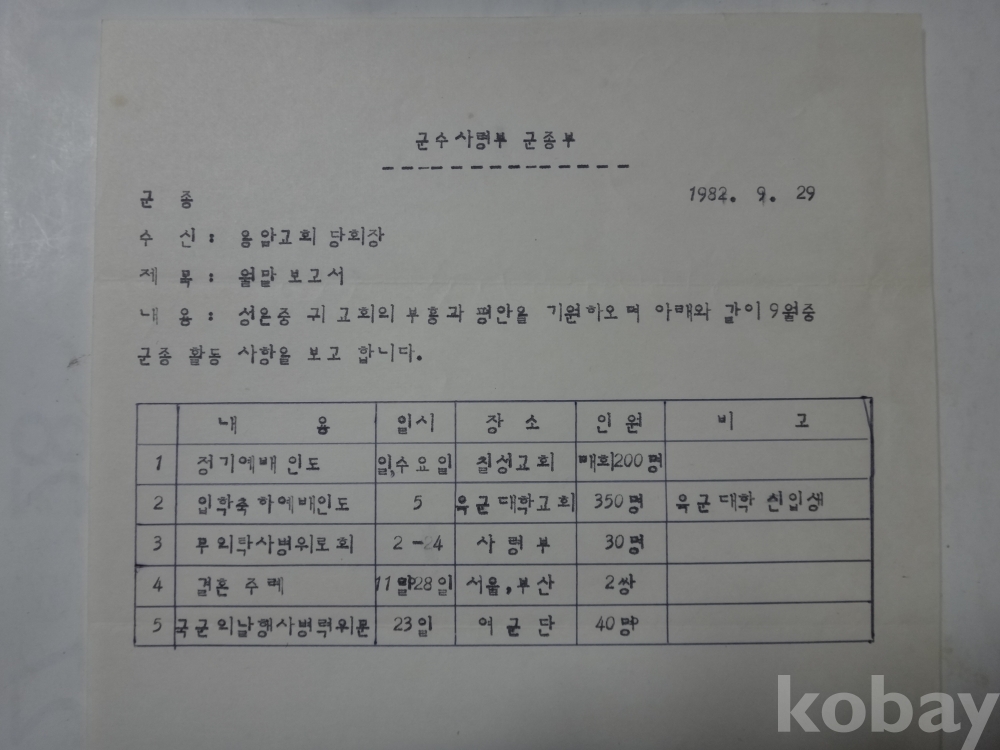 군수사령부 군종부
군 종 1982. 9. 29
수 신 : 용암교회 당회장
제 목 : 월말 보고서
내 용 : 성은중 귀 교회의 부흥과 평안을 기원하오며 아래와 같이 9월중
군종 활동 사항을 보고 합니다.
내 용 일시 장 소 인 원 비 고
1 정기예배 인도 일,수요일 칠성교회 매회200명
2 입학축하예배인도 5 육군대학교회 350명 육군대학 신입생
3 무의탁사병위로회 2-24 사령부 30명
4 결혼 주례 11일28일 서울,부산 2쌍
5 국군의날행사병력위문 23일 여군단 40명
kobay